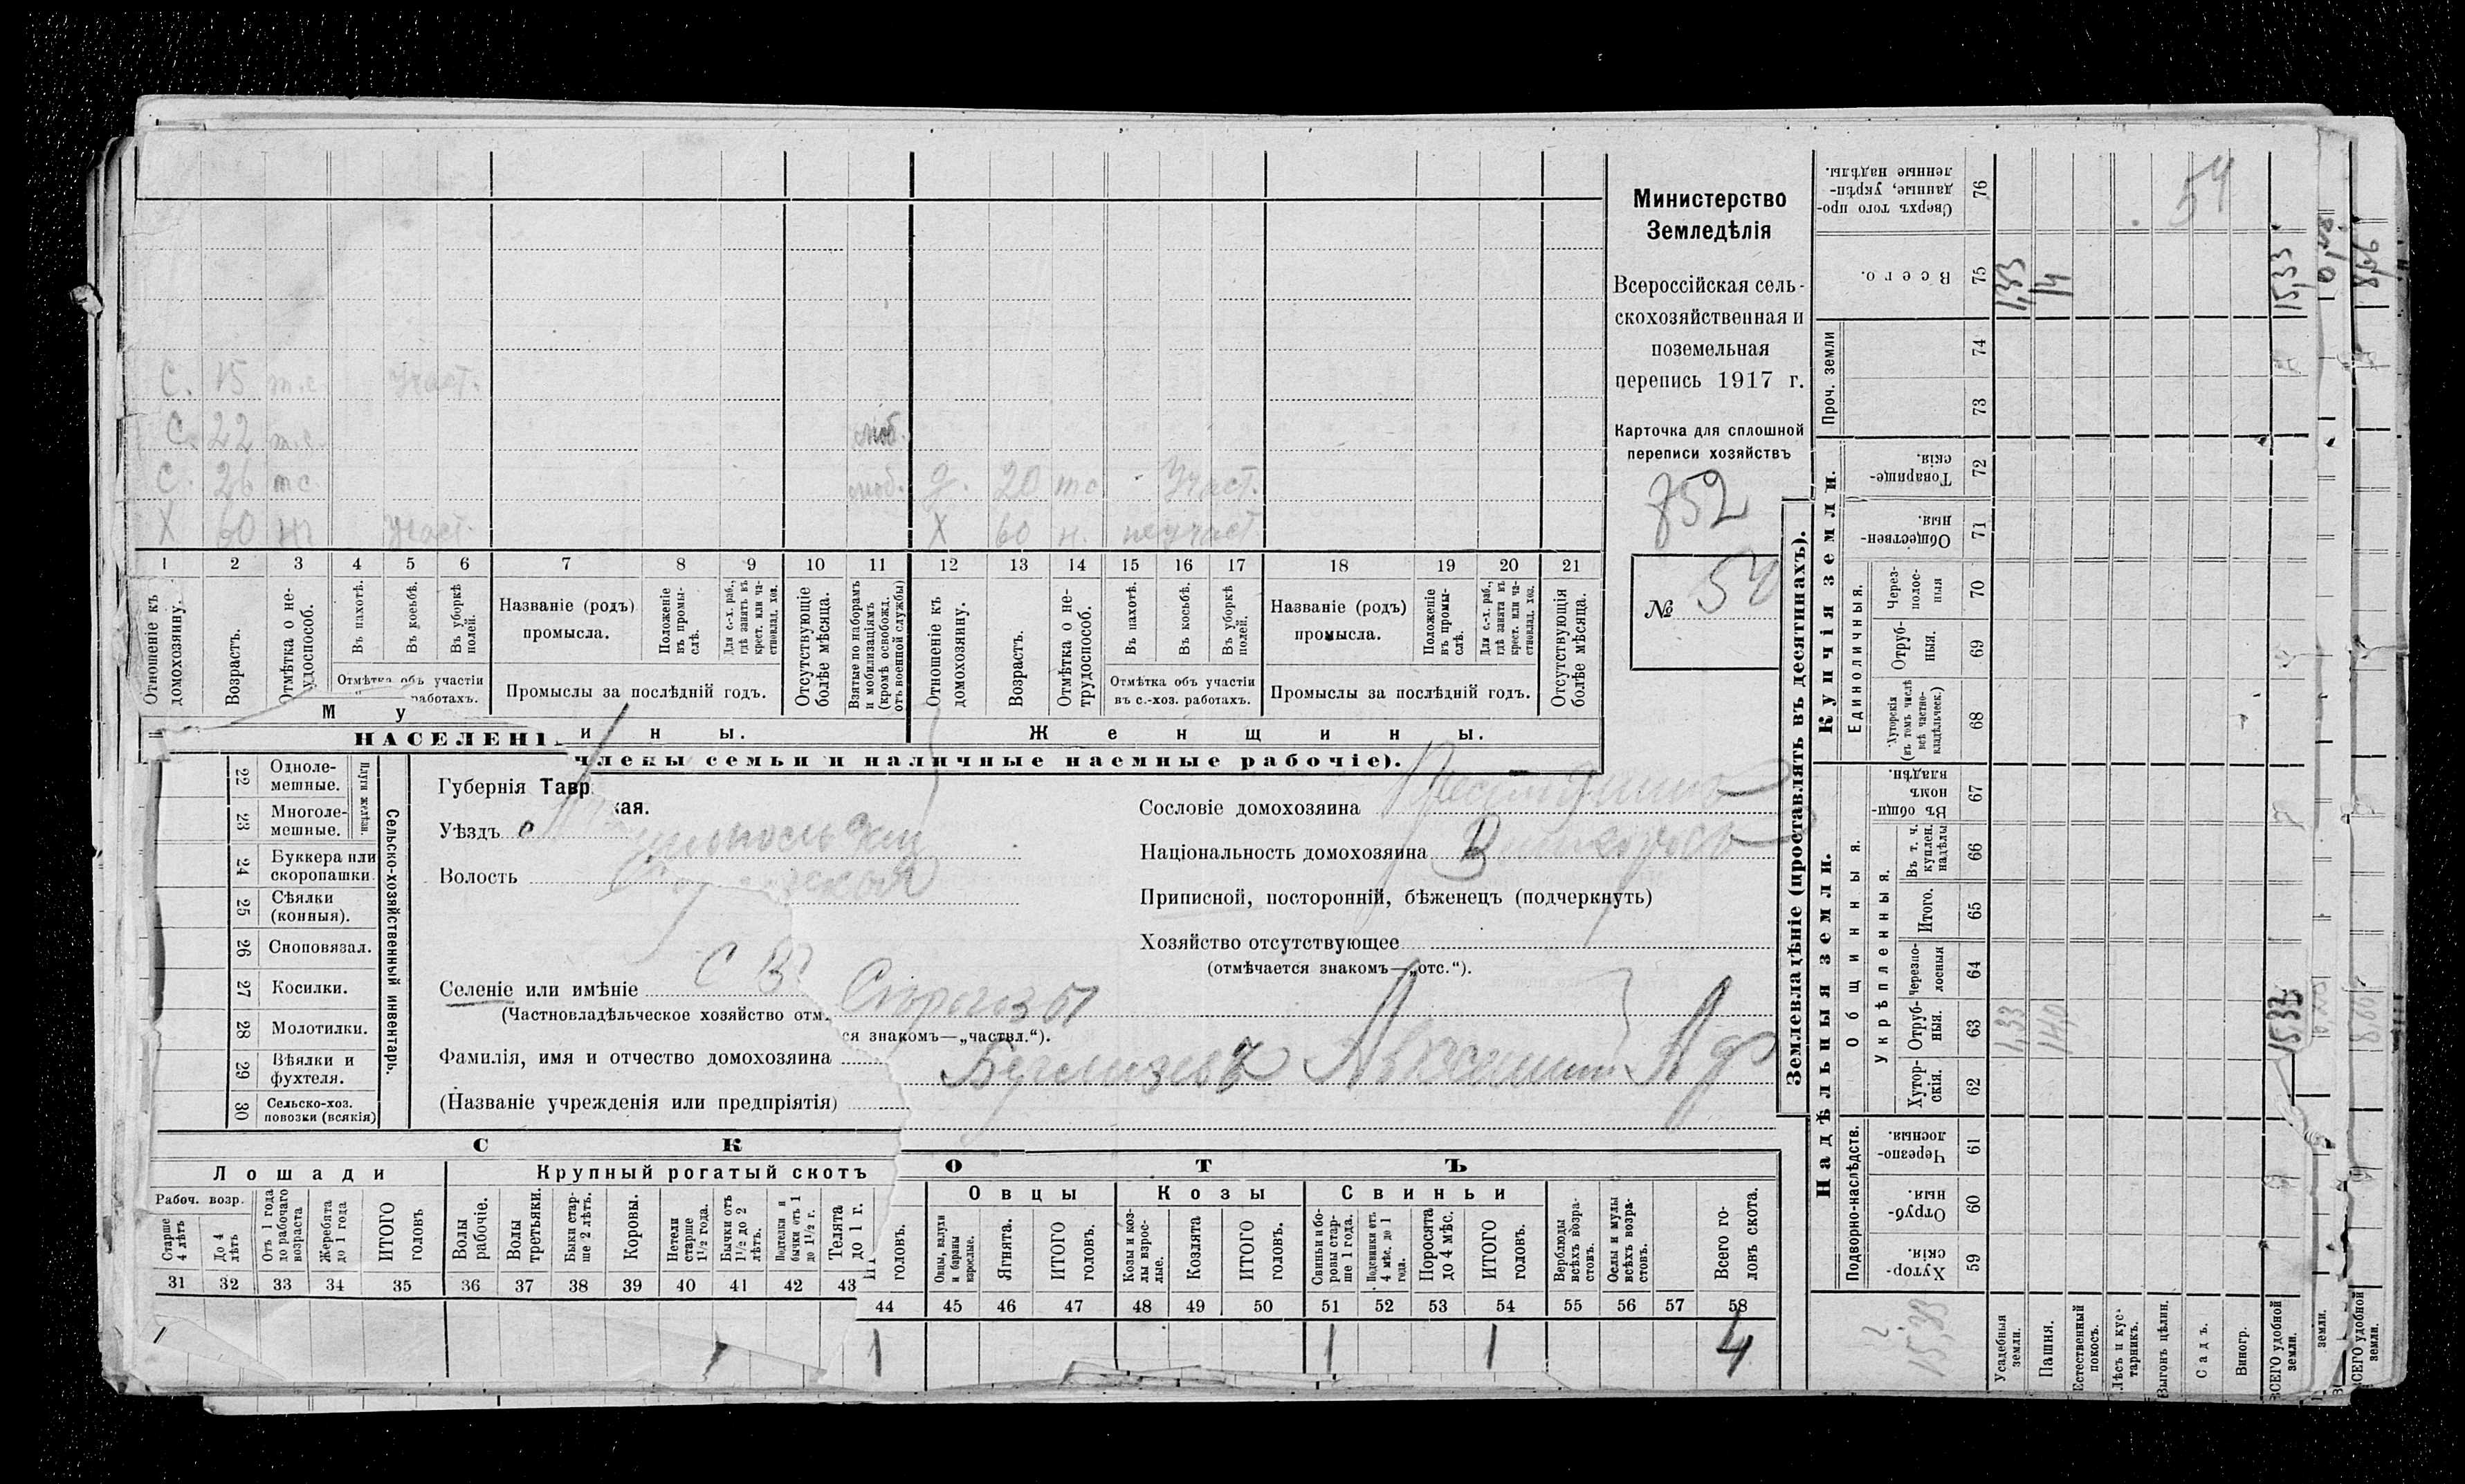 С. 15 т.с. участ.
С. 22 т.с. моб.
С. 26 т с моб. д. 20 т с участ.
Х 60 н. участ. Х 60 н. неучаст.
1 2 3 4 5 6 7 8 9 10 11 12 13 14 15 16 17 18 19 20 21
Отношеніе къ домохозяину.
Возрастъ.
Отмѣтка о не-
удоспособ.
Въ пахотѣ.
Въ косьбѣ.
Въ уборкѣ полей.
Отмѣтка объ участіи
работахъ.
Названіе (родъ)
промысла.
Положеніе въ промы-
слѣ.
Для с.-х. раб.,
гдѣ занятъ въ
крест. или ча-
стновлад. хоз.
Промыслы за послѣдній годъ.
Отсутствующіе
болѣе мѣсяца.
Взятые по наборамъ
и мобилизаціямъ
(кромѣ освобожд.
отъ военной службы)
Отношеніе къ
домохозяину.
Возрастъ.
Отмѣтка о не-
трудоспособ.
Въ пахотѣ.
Въ косьбѣ.
Въ уборкѣ
полей.
Отмѣтка объ участіи
въ с.-хоз. работахъ.
Названіе (родъ)
промысла.
Положеніе
въ промы-
слѣ.
Для с.-х. раб.,
гдѣ занята въ
крест. или ча-
стновлад. хоз.
Промыслы за послѣдній годъ.
Отсутствующія
болѣе мѣсяца.
М у
и н ы.
Ж е н щ и н ы.
НАСЕЛЕНІ
члены семьи и наличные наемные рабочіе).
Министерство
Земледѣлія
Всероссійская сель-
скохозяйственная и
поземельная
перепись 1917 г.
Карточка для сплошной
переписи хозяйствъ
752
№ 54
22 Одноле-
мешные.
23 Многоле-
мешные.
Плуги желѣзн.
24 Буккера или
скоропашки.
25 Сѣялки
(конныя).
26 Сноповязал.
27 Косилки.
28 Молотилки.
29 Вѣялки и
фухтеля.
30 Сельско-хоз.
повозки (всякія)
Сельско-хозяйственный инвентарь.
Губернія Тавр
кая.
Уѣздъ
Волость
Селеніе или имѣніе с В Серогозы
(Частновладѣльческое хозяйство отм.
ся знакомъ—„частвл.“).
Фамилія, имя и отчество домохозяина
(Названіе учрежденія или предпріятія)
Сословіе домохозяина
Національность домохозяина
Приписной, посторонній, бѣженецъ (подчеркнуть)
Хозяйство отсутствующее
(отмѣчается знакомъ—„отс.“).
С К О Т Ъ
Лошади
Рабоч. возр.
Старше
4 лѣтъ
До 4
лѣтъ
Отъ 1 года
до рабочаго
возраста
Жеребята
до 1 года
ИТОГО
головъ
Крупный рогатый скотъ
Волы
рабочіе.
Волы
третьяки.
Быки стар-
ше 2 лѣтъ.
Коровы.
Нетели
старше
1½ года.
Бычки отъ
1½ до 2
лѣтъ.
Подтелки и
бычки отъ 1
до 1½ г.
Телята
до 1 г.
головъ.
Овцы
Овцы, валухи
и бараны
взрослые.
Ягнята.
ИТОГО
головъ.
Козы
Козы и коз-
лы взрос-
лые.
Козлята
ИТОГО
головъ.
Свиньи
Свиньи и бо-
ровы стар-
ше 1 года.
Подсвинки отъ
4 мѣс. до 1
года.
Поросята
до 4 мѣс.
ИТОГО
головъ.
Верблюды
всѣхъ возра-
стовъ.
Ослы и мулы
всѣхъ возра-
стовъ.
Всего го-
ловъ скота.
31 32 33 34 35 36 37 38 39 40 41 42 43 44 45 46 47 48 49 50 51 52 53 54 55 56 57 58
1 1 1 4
Землевладѣніе (проставлять въ десятинахъ).
Купчія земли.
Надѣльныя земли.
Сверхъ того про-
данные, укрѣп-
ленные надѣлы.
76
54
Всего.
75
1,33
14
15,33
Проч. земли
74
73
Товарище-
скія.
72
Обществен-
ныя.
71
Единоличныя.
Через-
полос-
ныя
70
Отруб-
ныя.
69
Хуторскія
(въ томъ числѣ
всѣ частно-
владѣльческ.)
68
Общинныя.
Въ общи-
номъ
владѣн.
67
Укрѣпленныя.
Въ т. ч.
куплен.
надѣлы
66
Итого.
65
Черезпо-
лосныя
64
Отруб-
ныя.
63
1,33
14,0
15,33
Хутор-
скія.
62
Подворно-наслѣдств.
Черезпо-
лосныя.
61
Отруб-
ныя.
60
Хутор-
скія.
59
15,33
Усадебныя
земли.
Пашня.
Естественный
покосъ.
Лѣсъ и кус-
тарникъ.
Выгонъ цѣлин.
Садъ.
Виногр.
ВСЕГО удобной
земли.
земли.
ВСЕГО удобной
земли.